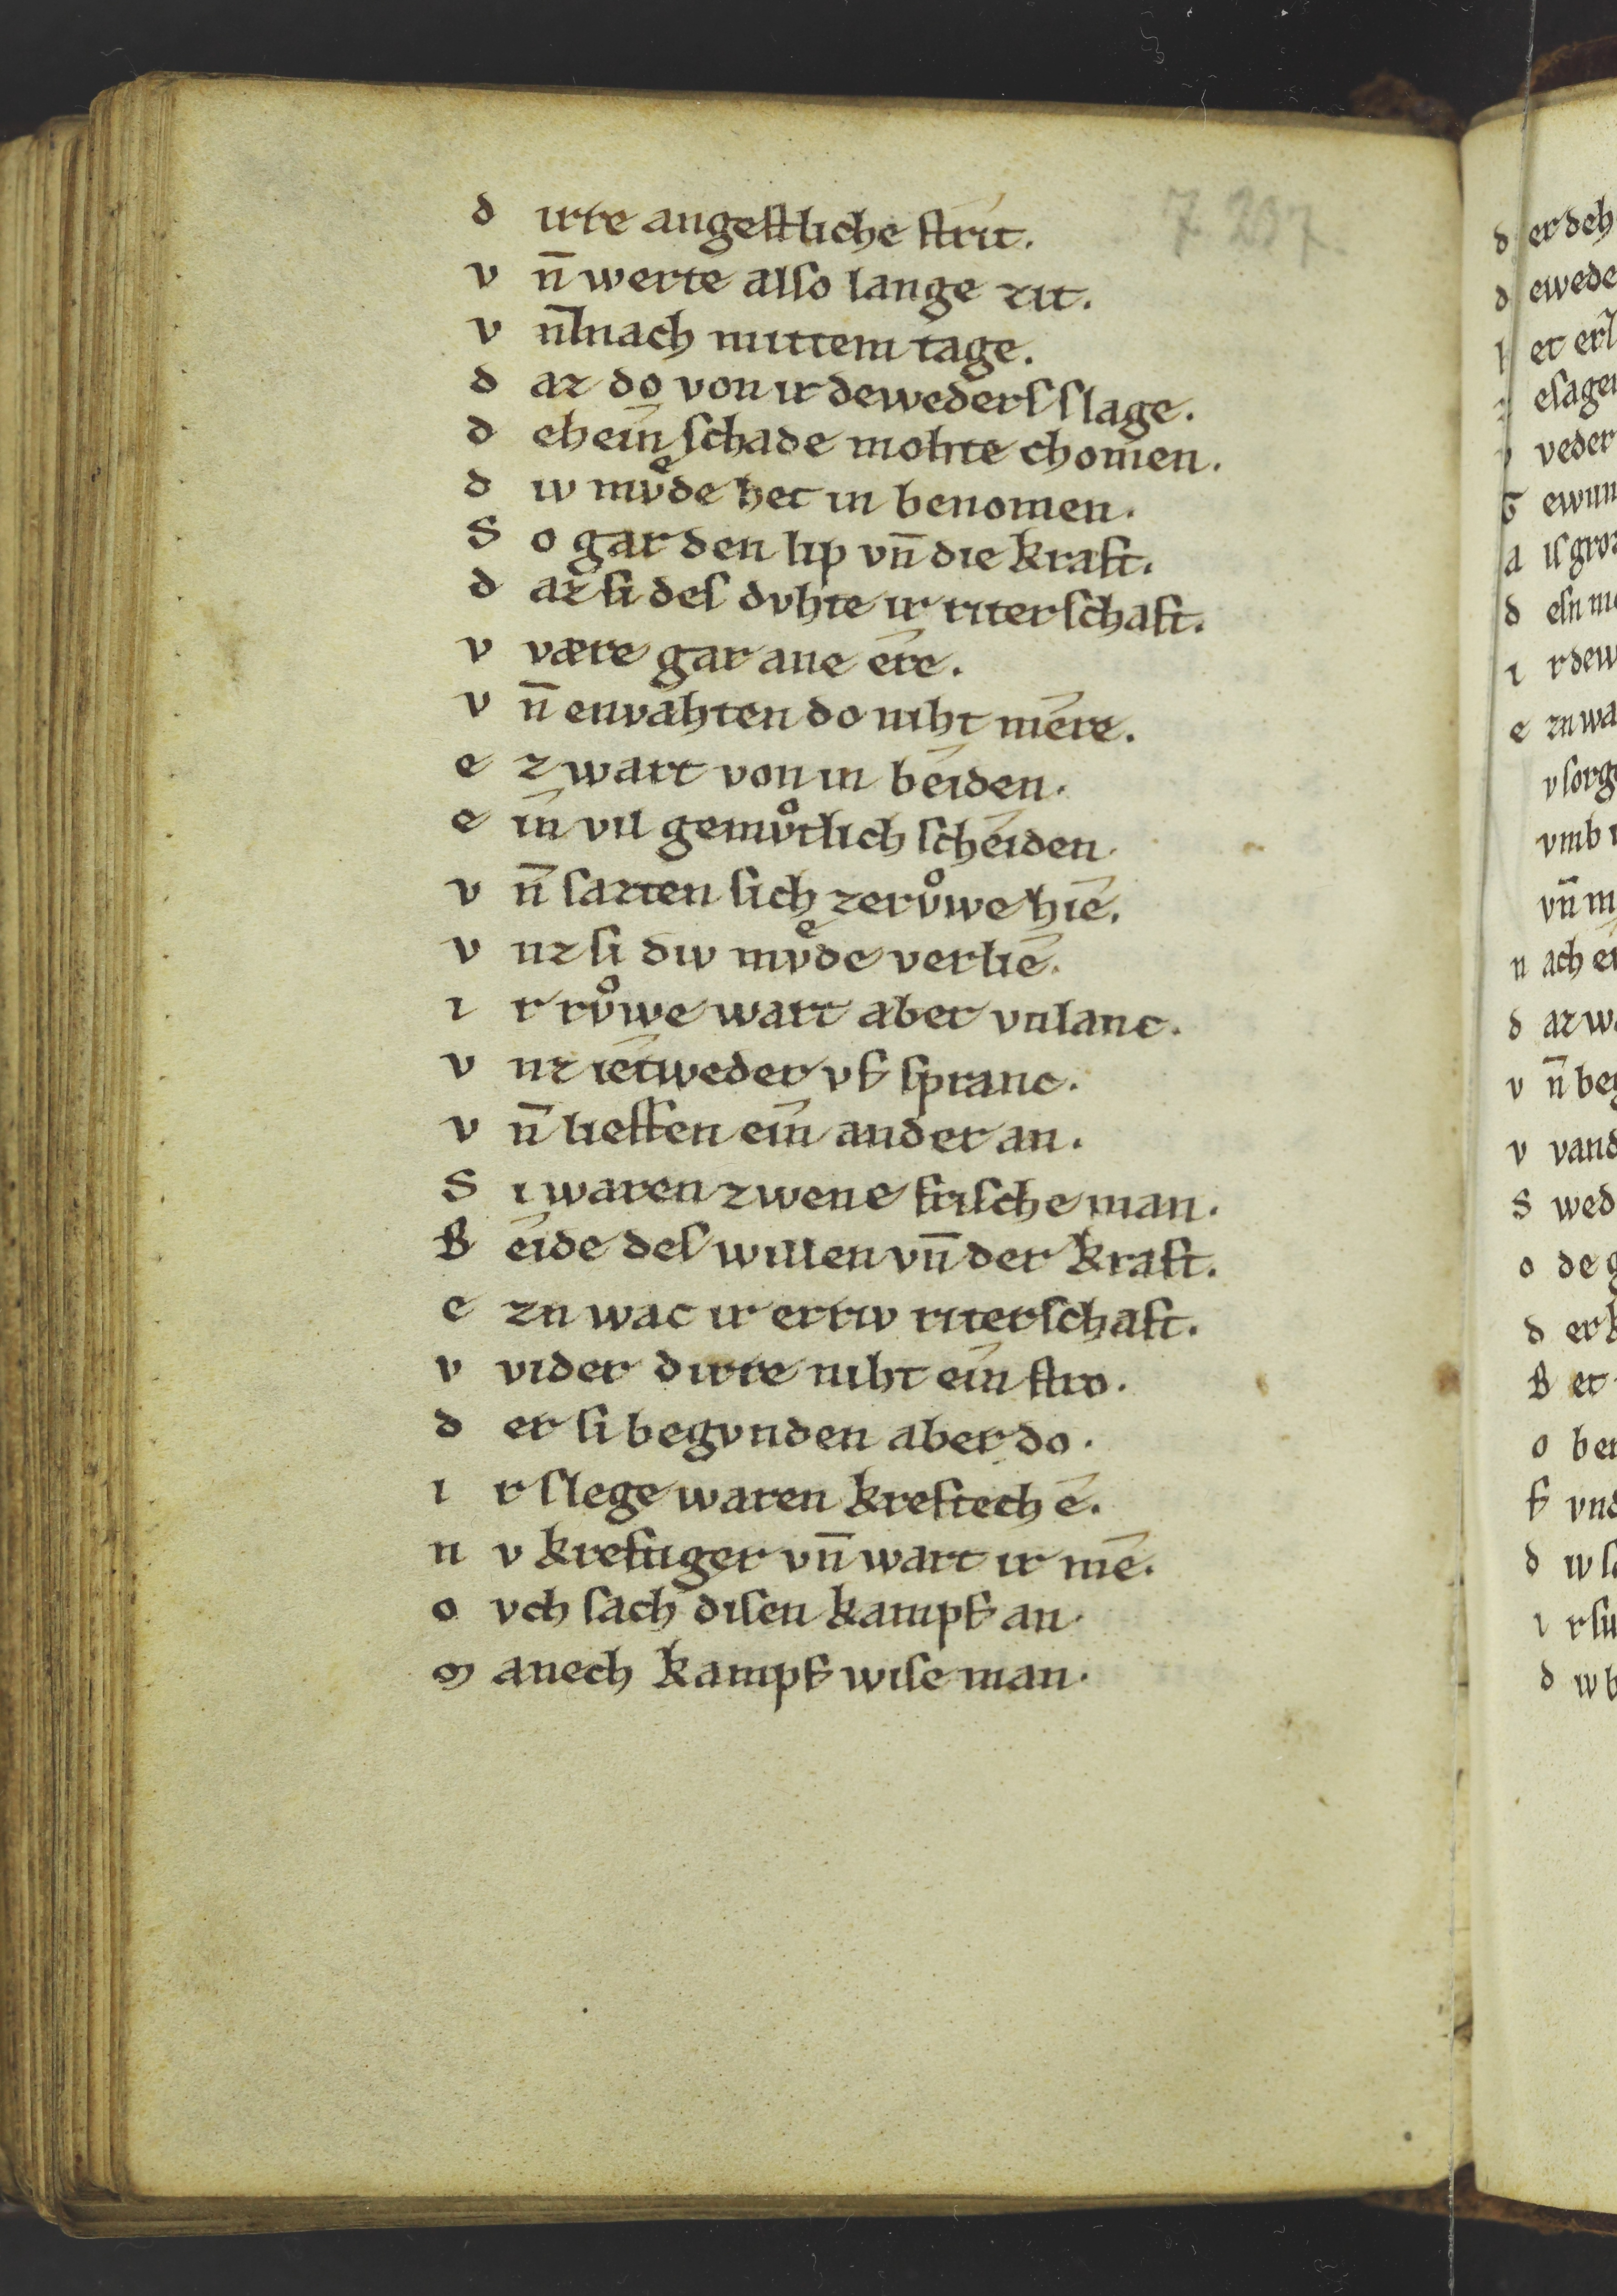 7 207
d irre angestliche strît.
v n̄ werte also lange zît.
v n̄ nach mittem tage.
d az do von ir deweders slage.
d ehein schade mohte chomen.
d iv mvͤde het in benomen.
S o gar den lip vn̄ die kraft.
d az si des dvhte ir riterschaft.
v være gar ane ere.
v n̄ envahten do niht mere.
e z wart von in beiden.
e in vil gemvͦtlich scheiden.
v n̄ sazten sich zervͦwe hie.
v nz si div mvͤde verlie.
i r rvͦwe wart aber vnlanc.
v nz ietweder vf spranc.
v n̄ lieffen ein ander an.
S i waren zwene frische man.
B eide des willen vn̄ der kraft.
e zn wac ir erriv riterschaft.
v vider dirre niht ein stro.
d er si begvnden aber do.
i r slege waren kreftech e.
n v kreftiger vn̄ wart ir me.
o vch sach disen kampf an.
m anech kampf wise man.